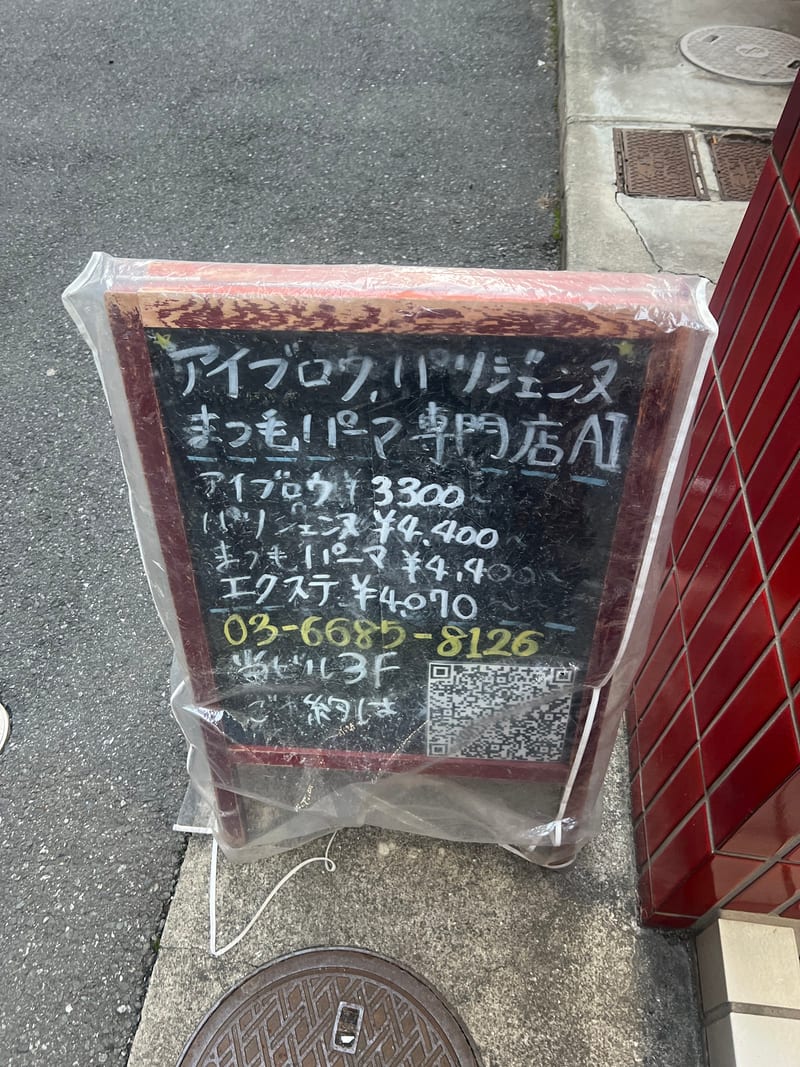 アイブロウ,パリジェンヌ
まつ毛パーマ専門店AI
アイブロウ¥3300~
パリジェンヌ¥4,400~
まつ毛パーマ¥4,400~
エクステ¥4,070~
03-6685-8126
当ビル3F
ご 約は